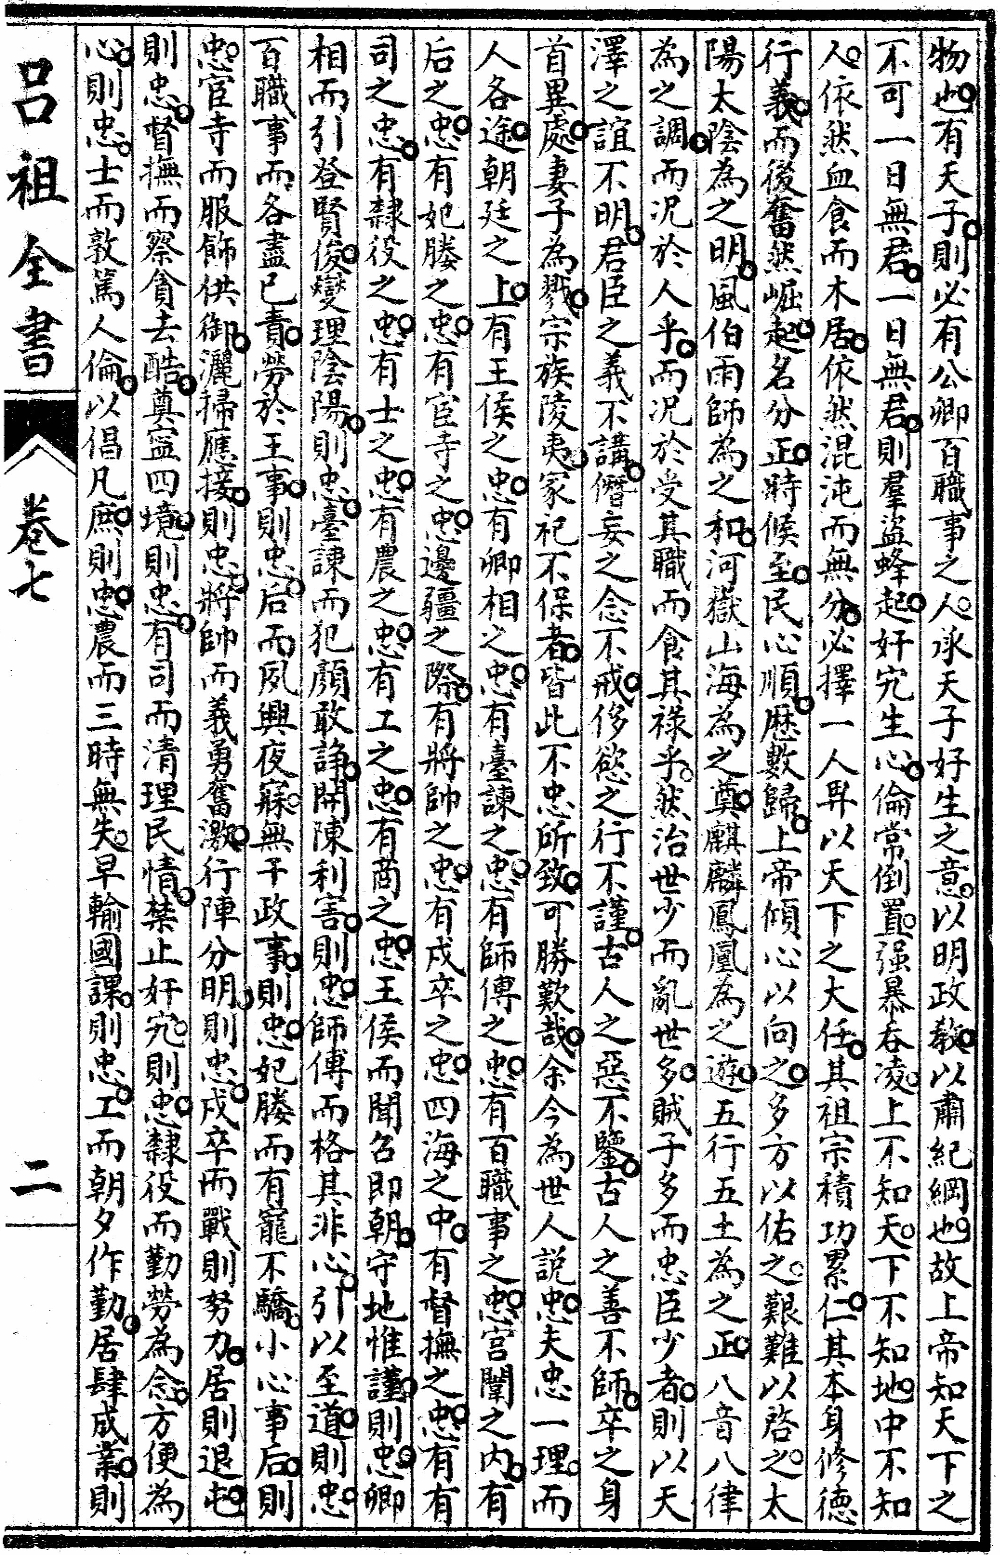 物也有天子則必有公卿百職事之人承天子好生之意以明政教以肅紀綱也故上帝知天下之
不可一日無君一日無君則羣盜蜂起奸宄生心倫常倒置强暴吞凌上不知天下不知地中不知
人依然血食而木居依然混沌而無分必擇一人畀以天下之大任其祖宗積功累仁其本身修德
行義而後奮然崛起名分正時候至民心順歷數歸上帝傾心以向之多方以佑之艱難以啓之太
陽太陰為之明風伯雨師為之和河嶽山海為之奠麒麟鳳凰為之遊五行五土為之正八音八律
為之調而况於人乎而况於受其職而食其祿乎然治世少而亂世多賊子多而忠臣少者則以天
澤之誼不明君臣之義不講僭妄之念不戒侈慾之行不謹古人之惡不鑒古人之善不師卒之身
首異處妻子為戮宗族陵夷冢祀不保者皆此不忠所致可勝歎哉余今為世人説忠夫忠一理而
人各途朝廷之上有王侯之忠有卿相之忠有臺諫之忠有師傅之忠有百職事之忠宮闈之内有
后之忠有妃媵之忠有宦寺之忠邊疆之際有將帥之忠有戍卒之忠四海之中有督撫之忠有有
司之忠有隸役之忠有士之忠有農之忠有工之忠有商之忠王侯而聞召即朝守地惟謹則忠卿
相而引登賢俊變理陰陽則忠臺諫而犯顏敢諍開陳利害則忠師傅而格其非心引以至道則忠
百職事而各盡已責勞於王事則忠后而夙興夜寐無干政事則忠妃媵而有寵不驕小心事后則
忠宦寺而服飾供御灑掃應接則忠將帥而義勇奮激行陣分明則忠戍卒而戰則努力居則退屯
則忠督撫而察貪去酷奠寍四境則忠有司而清理民情禁止奸宄則忠隸役而勤勞為念方便為
心則忠士而敦篤人倫以倡凡庶則忠農而三時無失早輸國課則忠工而朝夕作勤居肆成業則
吕祖全書
卷七
二